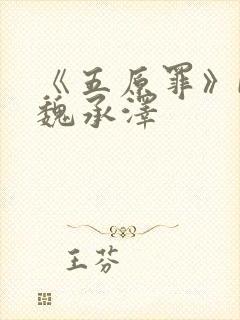 《五原罪》
魏承澤
王芬